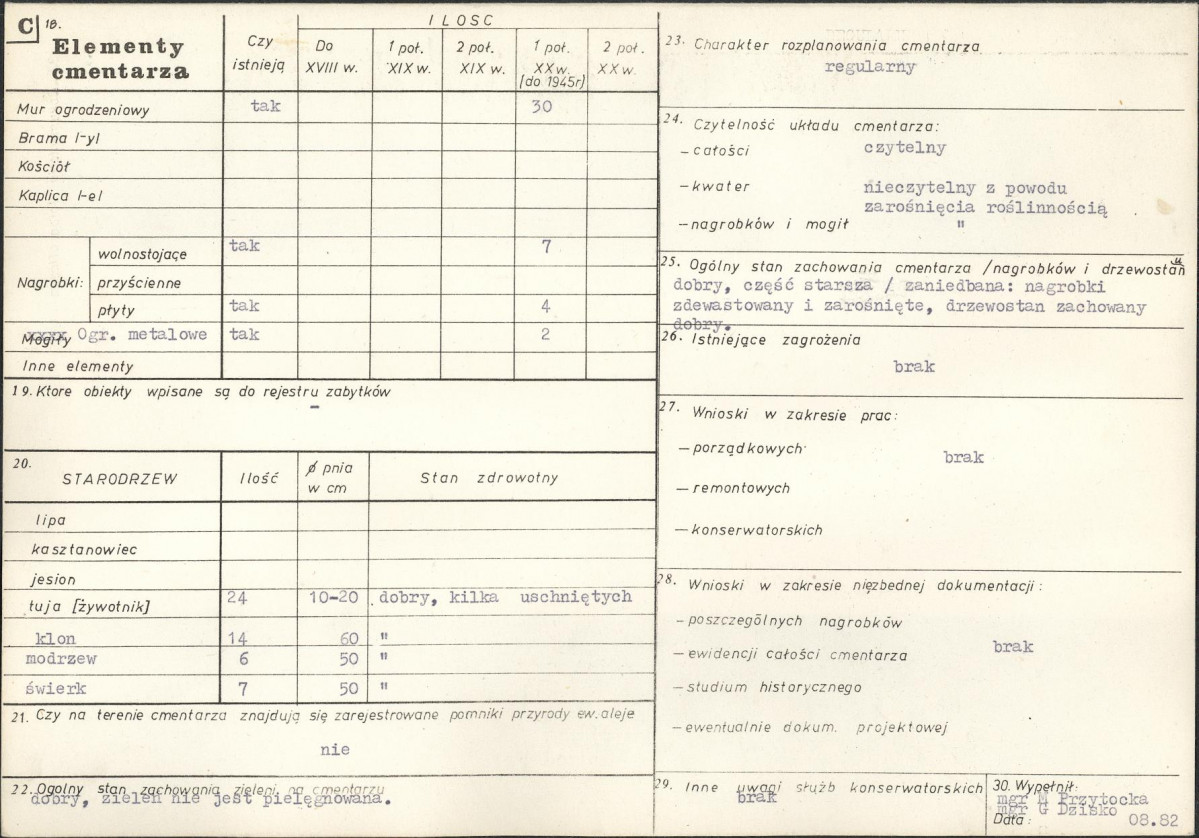 C 18.
Elementy cmentarza
Czy istnieją
ILOŚC
Do XVIII w.
1 poł. XIX w.
2 poł. XIX w.
1 poł. XX w. (do 1945r)
2 poł. XX w.
Mur ogrodzeniowy tak 30
Brama /-y/
Kościół
Kaplica /-e/
Nagrobki: wolnostojące tak 7
przyścienne
płyty tak 4
Mogiły Ogr. metalowe tak 2
Inne elementy
19. Ktore obiekty wpisane są do rejestru zabytków
–
20. STARODRZEW Ilość ø pnia w cm Stan zdrowotny
lipa
kasztanowiec
jesion
tuja [żywotnik] 24 10-20 dobry, kilka uschniętych
klon 14 60 "
modrzew 6 50 "
świerk 7 50 "
21. Czy na terenie cmentarza znajdują się zarejestrowane pomniki przyrody ew. aleje
nie
22. Ogolny stan zachowania zieleni na cmentarzu
dobry, zieleń nie jest pielęgnowana.
23. Charakter rozplanowania cmentarza
regularny
24. Czytelność układu cmentarza:
– całości czytelny
– kwater nieczytelny z powodu
zarośnięcia roślinnością
– nagrobków i mogił "
25. Ogólny stan zachowania cmentarza /nagrobków i drzewostanu
dobry, część starsza / zaniedbana: nagrobki
zdewastowany i zarośnięte, drzewostan zachowany
dobry.
26. Istniejące zagrożenia
brak
27. Wnioski w zakresie prac:
– porządkowych
brak
– remontowych
– konserwatorskich
28. Wnioski w zakresie niezbednej dokumentacji:
– poszczególnych nagrobków
brak
– ewidencji całości cmentarza
– studium historycznego
– ewentualnie dokum. projektowej
29. Inne uwagi służb konserwatorskich
brak
30. Wypełnił:
mgr M Przytocka
mgr G Dziśko
Data: 08.82